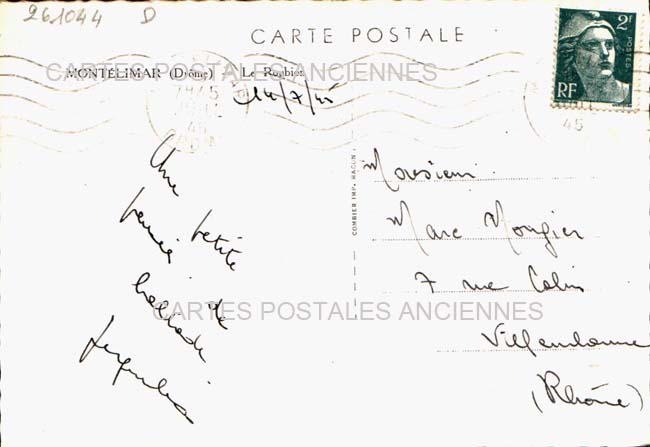 261044 D
CARTE POSTALE
MONTÉLIMAR (Drôme) Le Roubion
CARTES POSTALES ANCIENNES
14/7/45
2F
POSTES
RF
45
45
COMBIER IMP. MACON
Une petite
pensée de
Monsieur
Marc Mongier
7 rue Colin
CARTES POSTALES ANCIENNES
Villeurbanne
(Rhône)